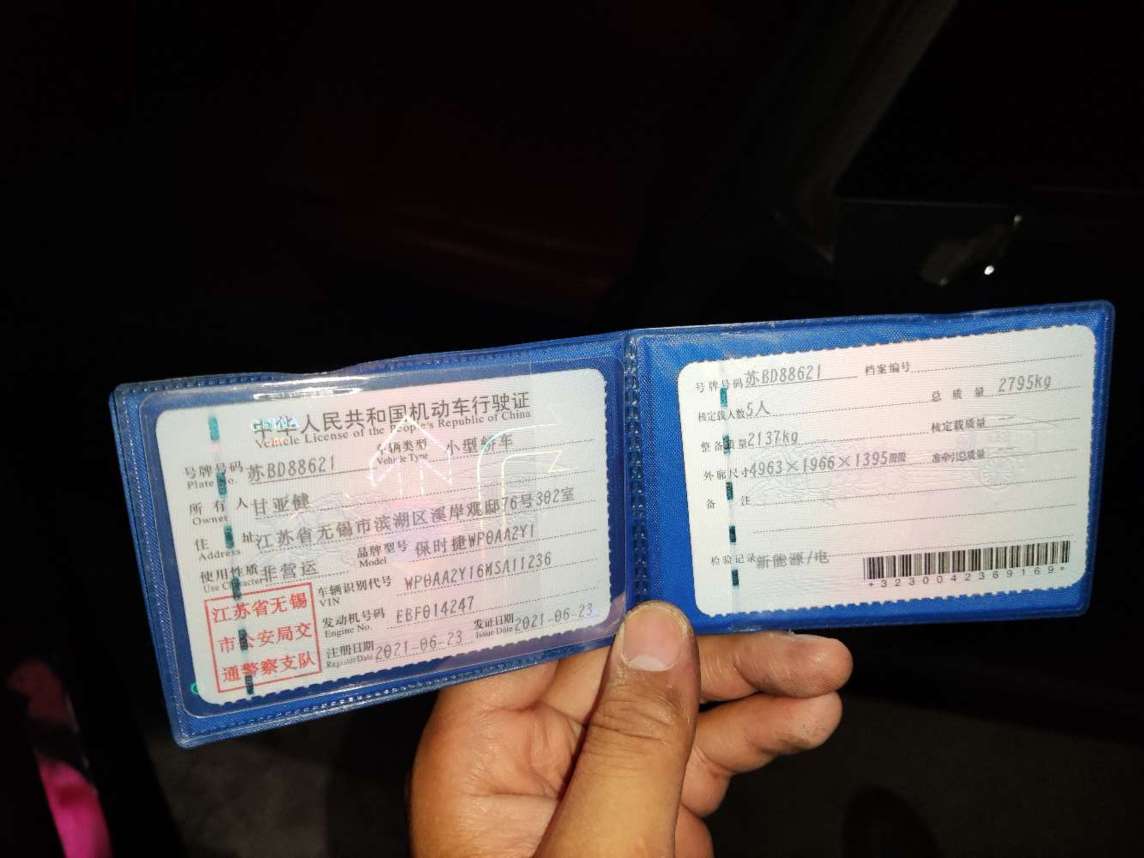 中华人民共和国机动车行驶证
Vehicle License of the People's Republic of China
号牌号码 苏BD88621 车辆类型 小型轿车
Plate No. Vehicle Type
所有人 甘亚健
Owner
住址 江苏省无锡市滨湖区溪岸观邸76号302室
Address
使用性质 非营运 品牌型号 保时捷WP0AA2Y1
Use Character Model
江苏省无锡
市公安局交
通警察支队
车辆识别代号 WP0AA2Y16MSA11236
VIN
发动机号码 EBF014247
Engine No.
注册日期 2021-06-23 发证日期 2021-06-23
Register Date Issue Date
号牌号码 苏BD88621 档案编号
核定载人数 5人 总质量 2795kg
整备质量 2137kg 核定载质量
外廓尺寸 4963×1966×1395mm 准牵引总质量
备注
检验记录 新能源/电
*3230042369169*